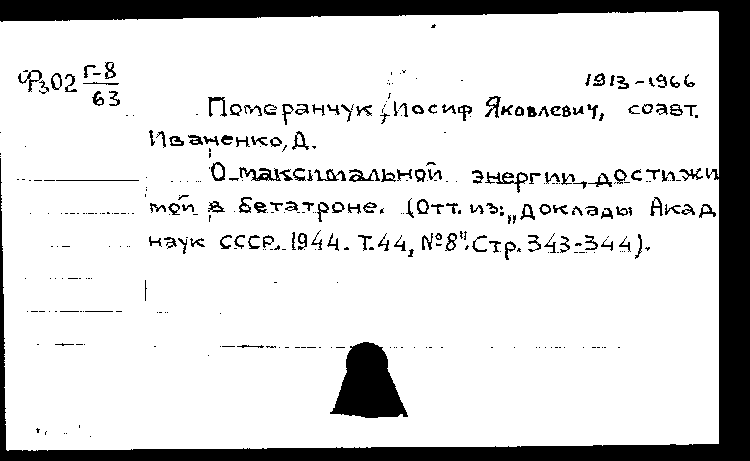 Фз02 Г-8/63
1913-1966
Померанчук, Иосиф Яковлевич, соавт.
Иваненко, Д.
О максимальной энергии, достижи
мой в бетатроне. (Отт. из: „Доклады Акад
наук СССР. 1944. Т.44, №8". Стр. 343-344).